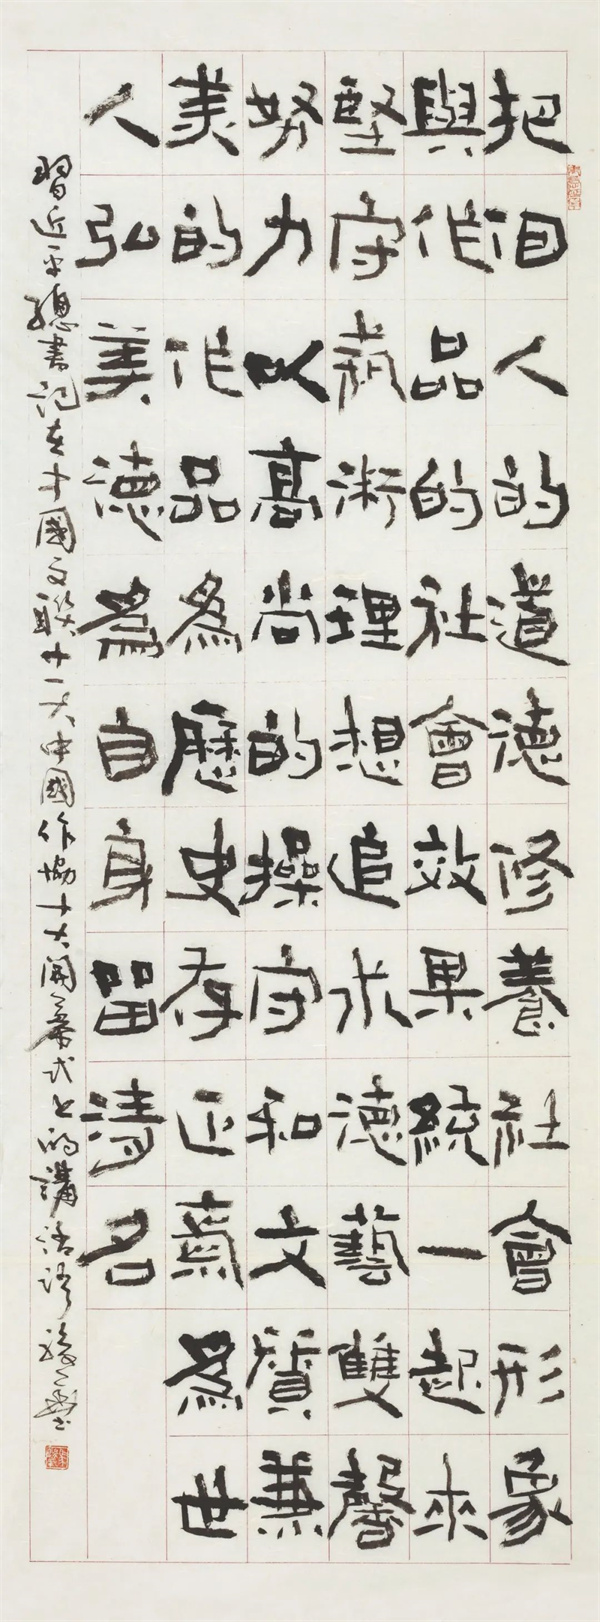 把個人的道德修養社會形象
與作品的社會效果統一起來
堅守埶術理想追求德藝雙馨
努力以高尚的操守和文質兼
美的作品爲歷史存正氣爲世
人弘美德爲自身留清名
習近平總書記在中國文聯十一大中國作協十大開幕式上的講話